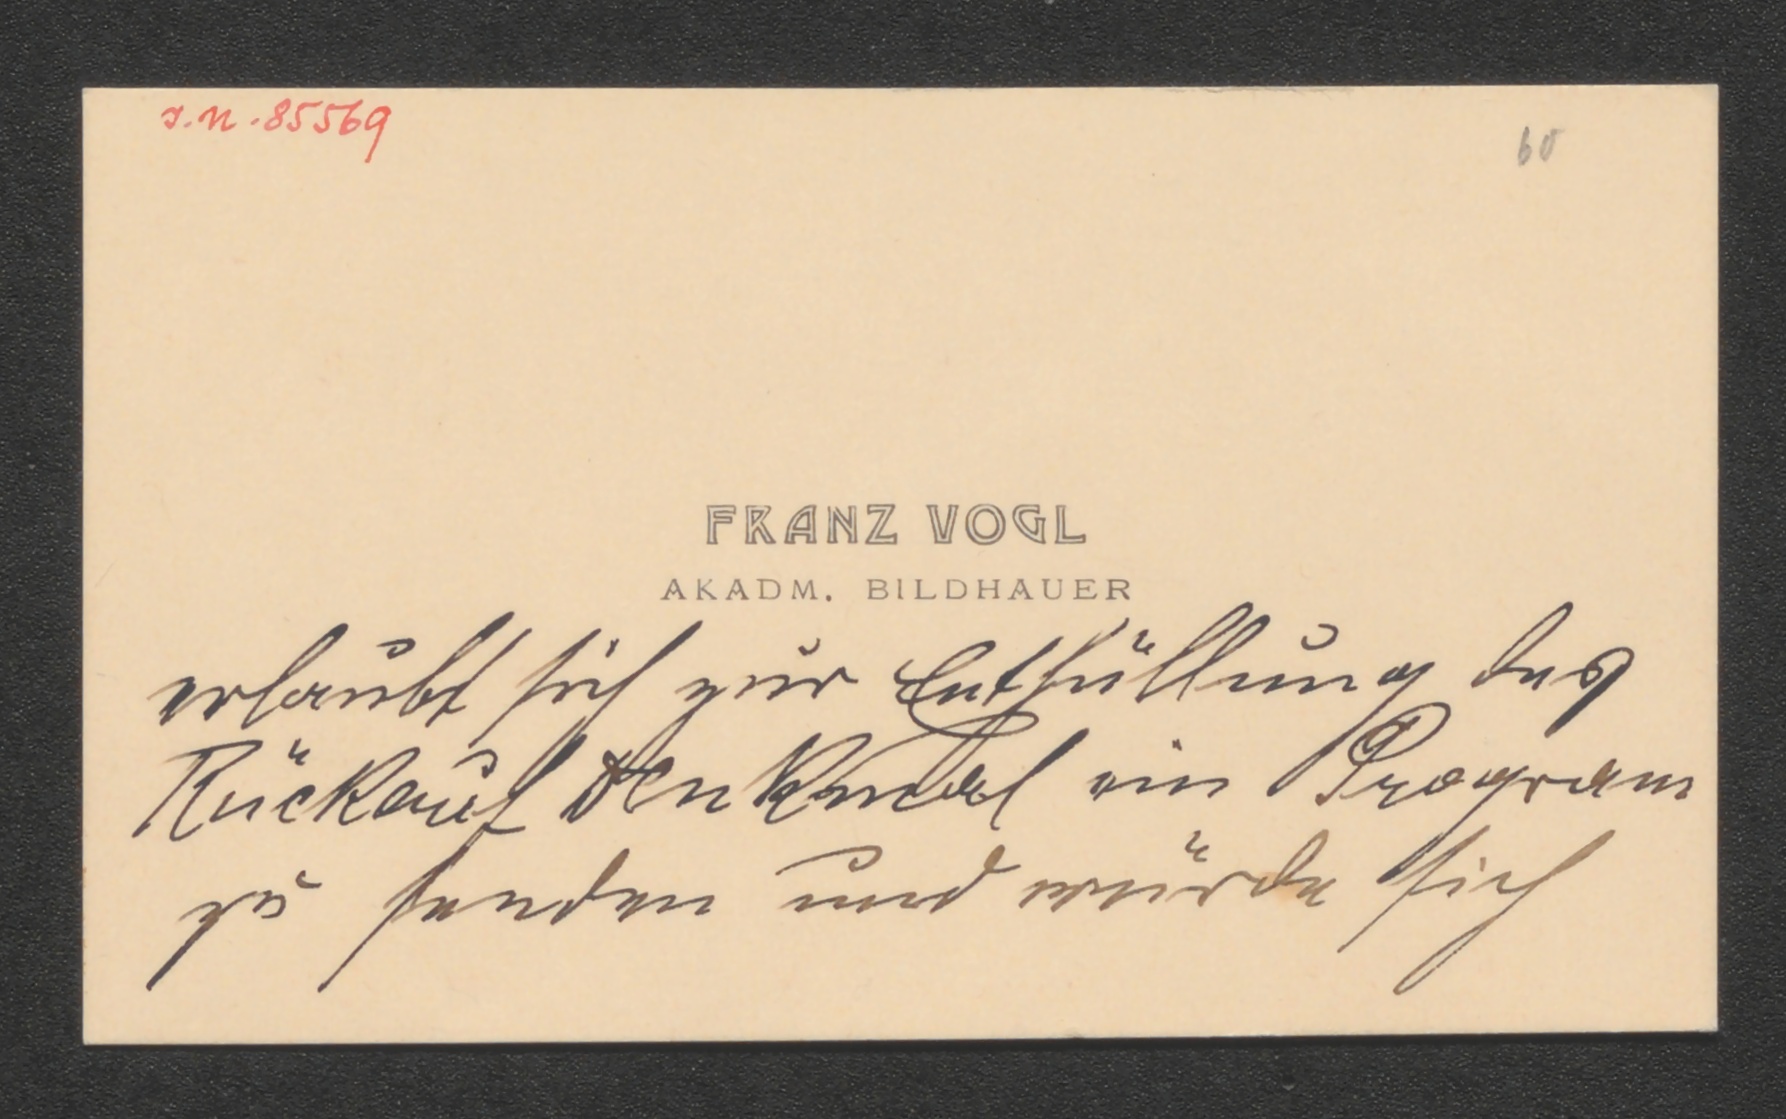 J.N. 85569
60
FRANZ VOGL
AKADM. BILDHAUER
erlaubt sich zur Enthüllung des
Rückauf Denkmal ein Program
zu senden und würde sich